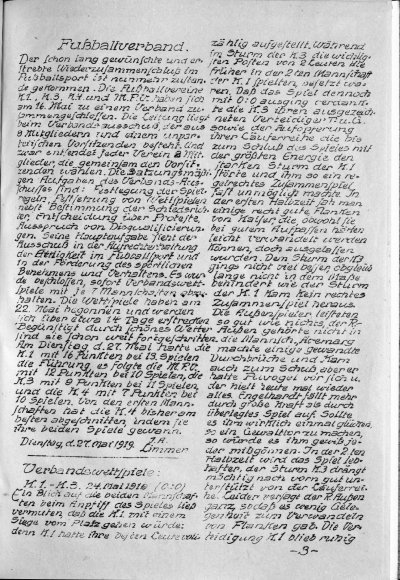 Fußballverband.
Der schon lang gewünschte und er-
strebte Wiederzusammenschluß im
Fußballsport ist nunmehr zustan-
de gekommen. Die Fußballvereine
K.1, K.3, K.4 und M.F.V. haben sich
am 16. Mai zu einem Verband zu-
sammengeschlossen. Die Leitung liegt
beim Verbandsausschuß, der aus
8 Mitgliedern und einem unpar-
teiischen Vorsitzenden besteht. Und
zwar entsendet jeder Verein 2 Mit-
glieder, die gemeinsam den Vorsit-
zenden wählen. Die satzungsmäßi-
gen Aufgaben des Verbands-Aus-
schußes sind: Festlegung der Spiel-
regeln, Festsetzung von Wettspielen
nebst Bestimmung der Schiedsrich-
ter, Entscheidung über Proteste,
Ausspruch von Disqualifizierun-
gen. Seine Hauptaufgabe sieht der
Ausschuß in der Aufrechterhaltung
der Einigkeit im Fußballsport und
in der Förderung des sportlichen
Benehmens und Verhaltens. Es wur-
de beschlossen, sofort Verbandswett-
Spiele mit je 7 Mannschaften abzu-
halten. Die Wettspiele haben am
22. Mai begonnen und werden
sich über circa 14 Tage erstrecken.
Begünstigt durch schönes Wetter
sind sie schon weit fortgeschritten.
Am Dienstag, d. 27. Mai hatte die
K.1 mit 16 Punkten bei 13 Spielen
die Führung, es folgte die M.F.V.
mit 12 Punkten bei 10 Spielen, die
K.3 mit 9 Punkten bei 11 Spielen
und die K.4 mit 7 Punkten bei
10 Spielen. Von den ersten Mann-
schaften hat die K.4 bisher am
besten abgeschnitten, indem sie
ihre beiden Spiele gewann.
Dienstag, d. 27. Mai 1919. J.A.
Limmer
Verbandswettspiele:
K.1.-K.3. 24. Mai 1919 (0:0)
Ein Blick auf die beiden Mannschaf-
ten beim Antreff des Spieles ließ
vermuten, daß die K.1 mit einem
Siege vom Platz gehen würde;
denn K.1 hatte ihre besten Leute voll-
zählig aufgestellt, während
im Sturm der K.3 die wichtig-
sten Posten von 2 Leuten die
früher in der 2ten Mannschaft
der K.1 spielten, besetzt wa-
ren. Daß das Spiel dennoch
mit 0:0 ausging verdankt
die K.3 ihren ausgezeich-
neten Verteidiger
sowie der Aufopferung
ihrer Läuferreihe die bis
zum Schluß des Spieles mit
der größten Energie den
starken Sturm der K.1
störte und ihm so ein re-
gelrechtes Zusammenspiel
oft unmöglich machte. In
der ersten Halbzeit sah man
einige recht gute Flanken
von Kaiser, die, obwohl sie
bei gutem Aufpassen hätten
leicht verwandelt werden
können, doch ausgelassen
wurden. Dem Sturm der K.3
gings nicht viel besser, obgleich
lange nicht in dem Maße
behindert wie der Sturm
der K.1 kam kein rechtes
Zusammenspiel heraus.
Die Außenspieler leisteten
so gut wie nichts, der R-
Außen gehörte nicht in
die Mannsch.,
machte einige gewandte
Durchbrüche und kam
auch zum Schuß, aber er
hatte vor sich u.
der hielt heute mal wieder
alles. Engelhardt fällt mehr
durch große Kraft als durch
überlegtes Spiel auf. Sollte
es ihm wirklich einmal glücken,
so ein zu machen,
so würde es ihm gewiß je-
der mißgönnen. In der 2ten
Halbzeit wird das Spiel leb-
hafter, der Sturm K.1 drängt
mächtig nach vorn gut un-
terstützt von der Läuferrei-
he. Leider versagt der R. Außen
ganz, sodaß es wenig Gele-
genheit zum Verwandeln
von Flanken gab. Die Ver-
teidigung K.1 blieb ruhig
-3-